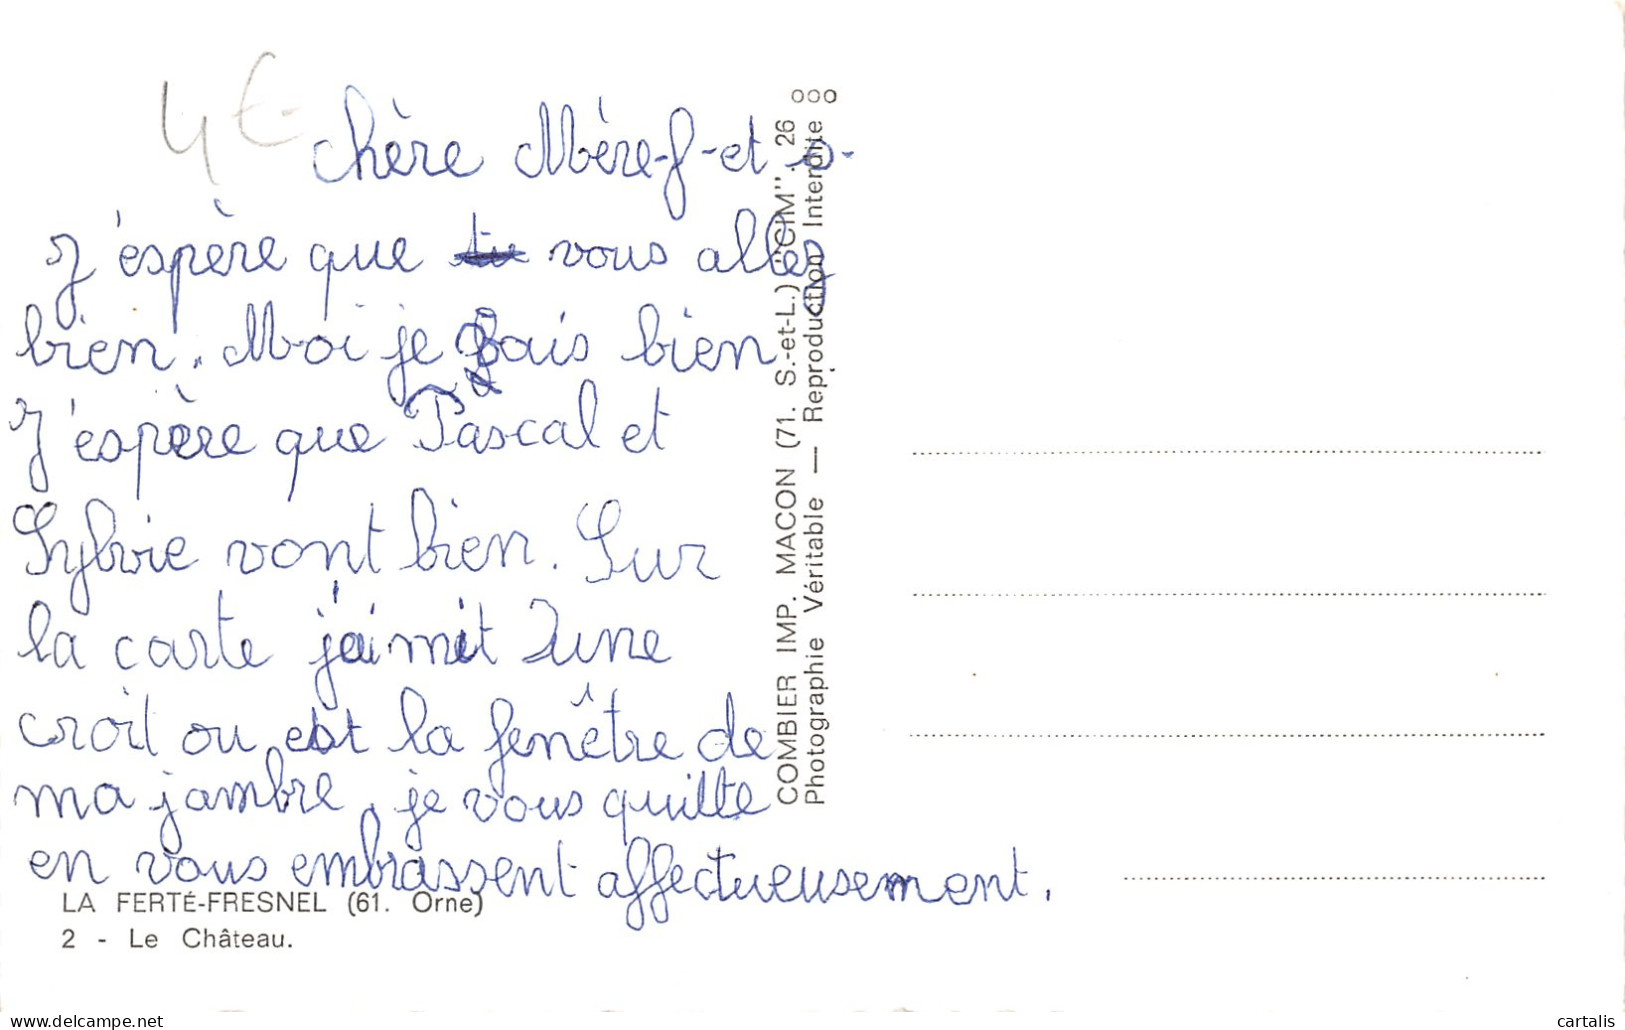 4€
chère Mère-f-et-p-
J'espère que tu vous allez
bien. Moi je vais bien
J'espère que Pascal et
Sylvie vont bien. Sur
la carte j'ai mit une
croit ou est la fenêtre de
ma jambre, je vous quitte
en vous embrassent affectueusement.
LA FERTÉ-FRESNEL (61. Orne)
2 - Le Château.
COMBIER IMP. MACON (71. S.-et-L.) "CIM". 26
Photographie Véritable — Reproduction Interdite
cartalis
www.delcampe.net